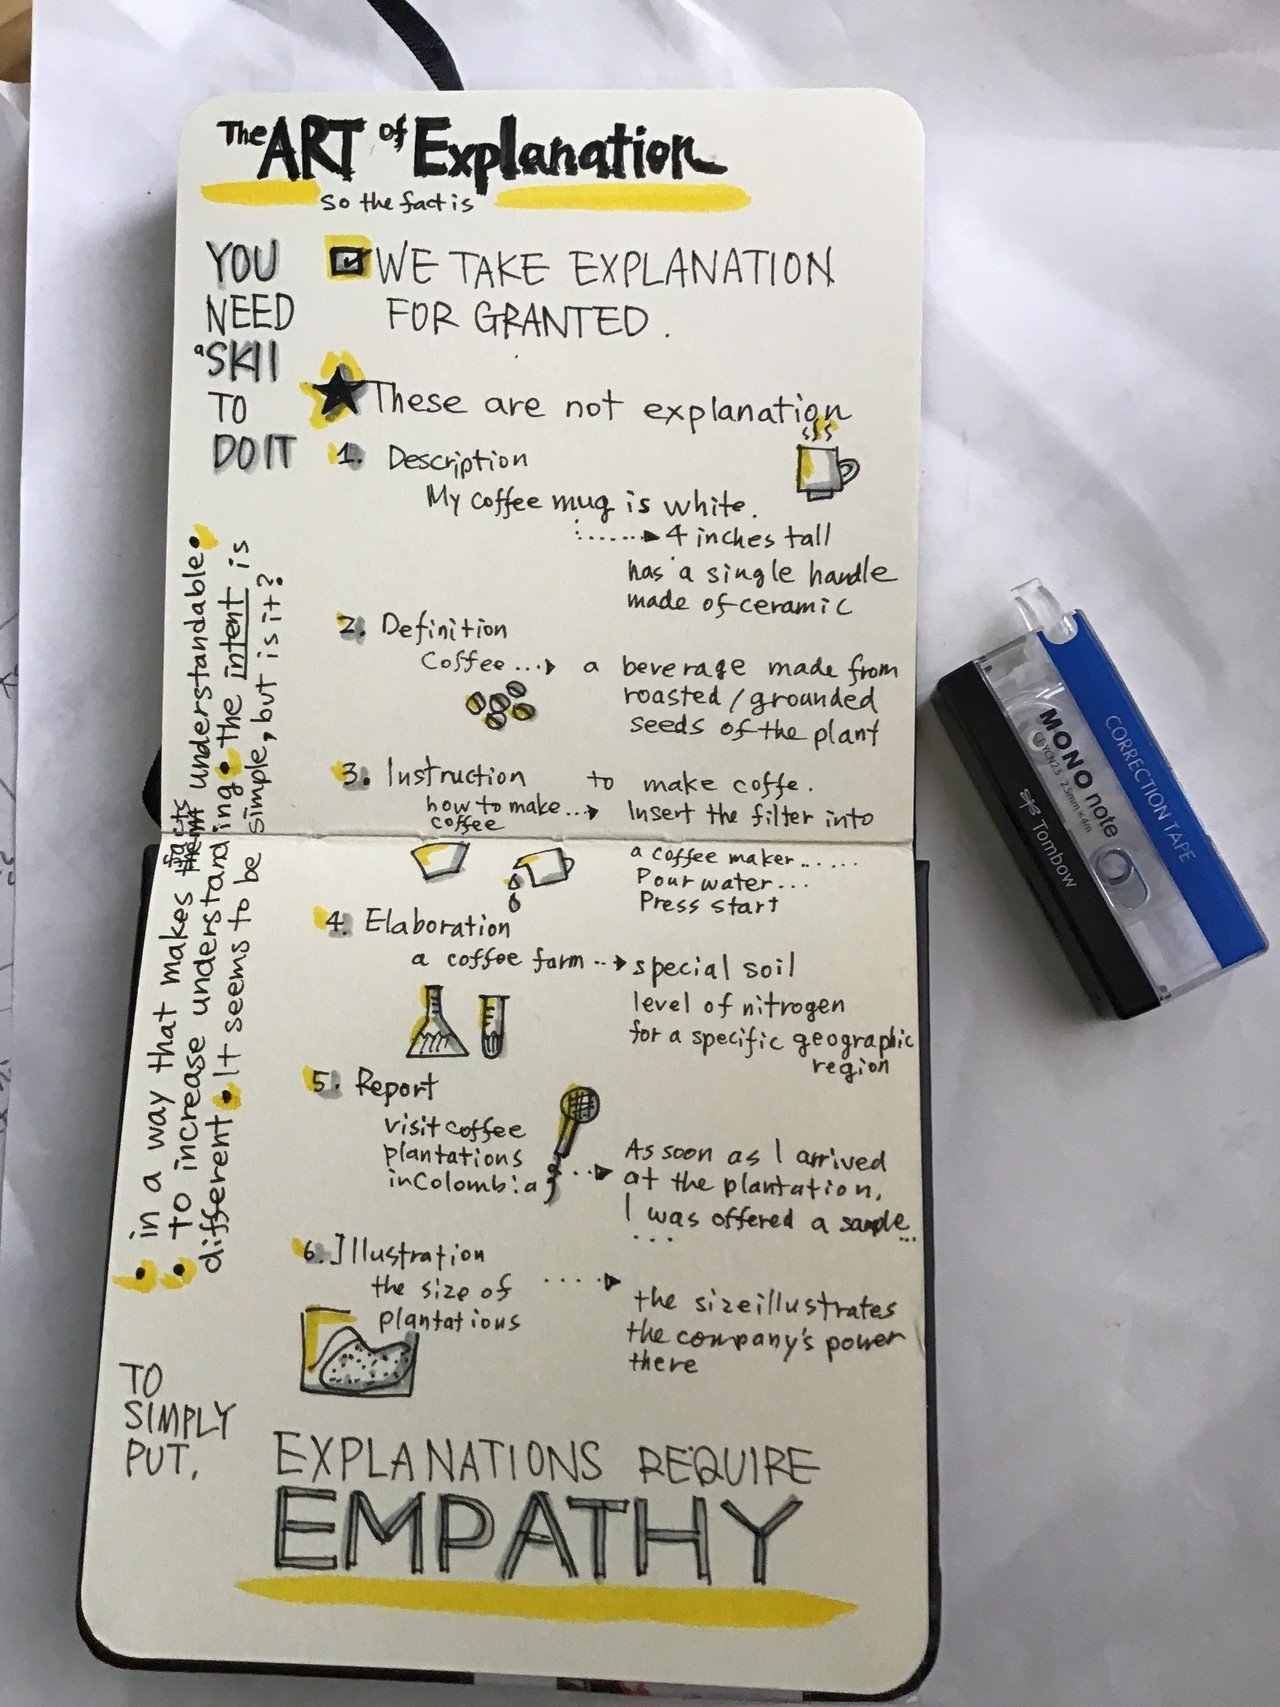 The ART of Explanation
so the fact is
YOU
NEED
a SKIll
TO
DO IT
WE TAKE EXPLANATION
FOR GRANTED.
These are not explanation
1. Description
My coffee mug is white.
4 inches tall
has a single handle
made of ceramic
2. Definition
Coffee...
a beverage made from
roasted/grounded
seeds of the plant
3. Instruction
how to make...
coffee
to make coffe.
Insert the filter into
a coffee maker......
Pour water...
Press start
4. Elaboration
a coffee farm..
special soil
level of nitrogen
for a specific geographic
region
5. Report
visit coffee
plantations
in Colombia
As soon as I arrived
at the plantation,
I was offered a sample...
...
6. Illustration
the size of
plantations
....
the size illustrates
the company's power
there
• in a way that makes facts understandable.
• to increase understanding • the intent is
different • It seems to be simple, but is it?
TO
SIMPLY
PUT,
EXPLANATIONS REQUIRE
EMPATHY
CORRECTION TAPE
MONO note
YCN2.5 2.5mm×4m
Tombow